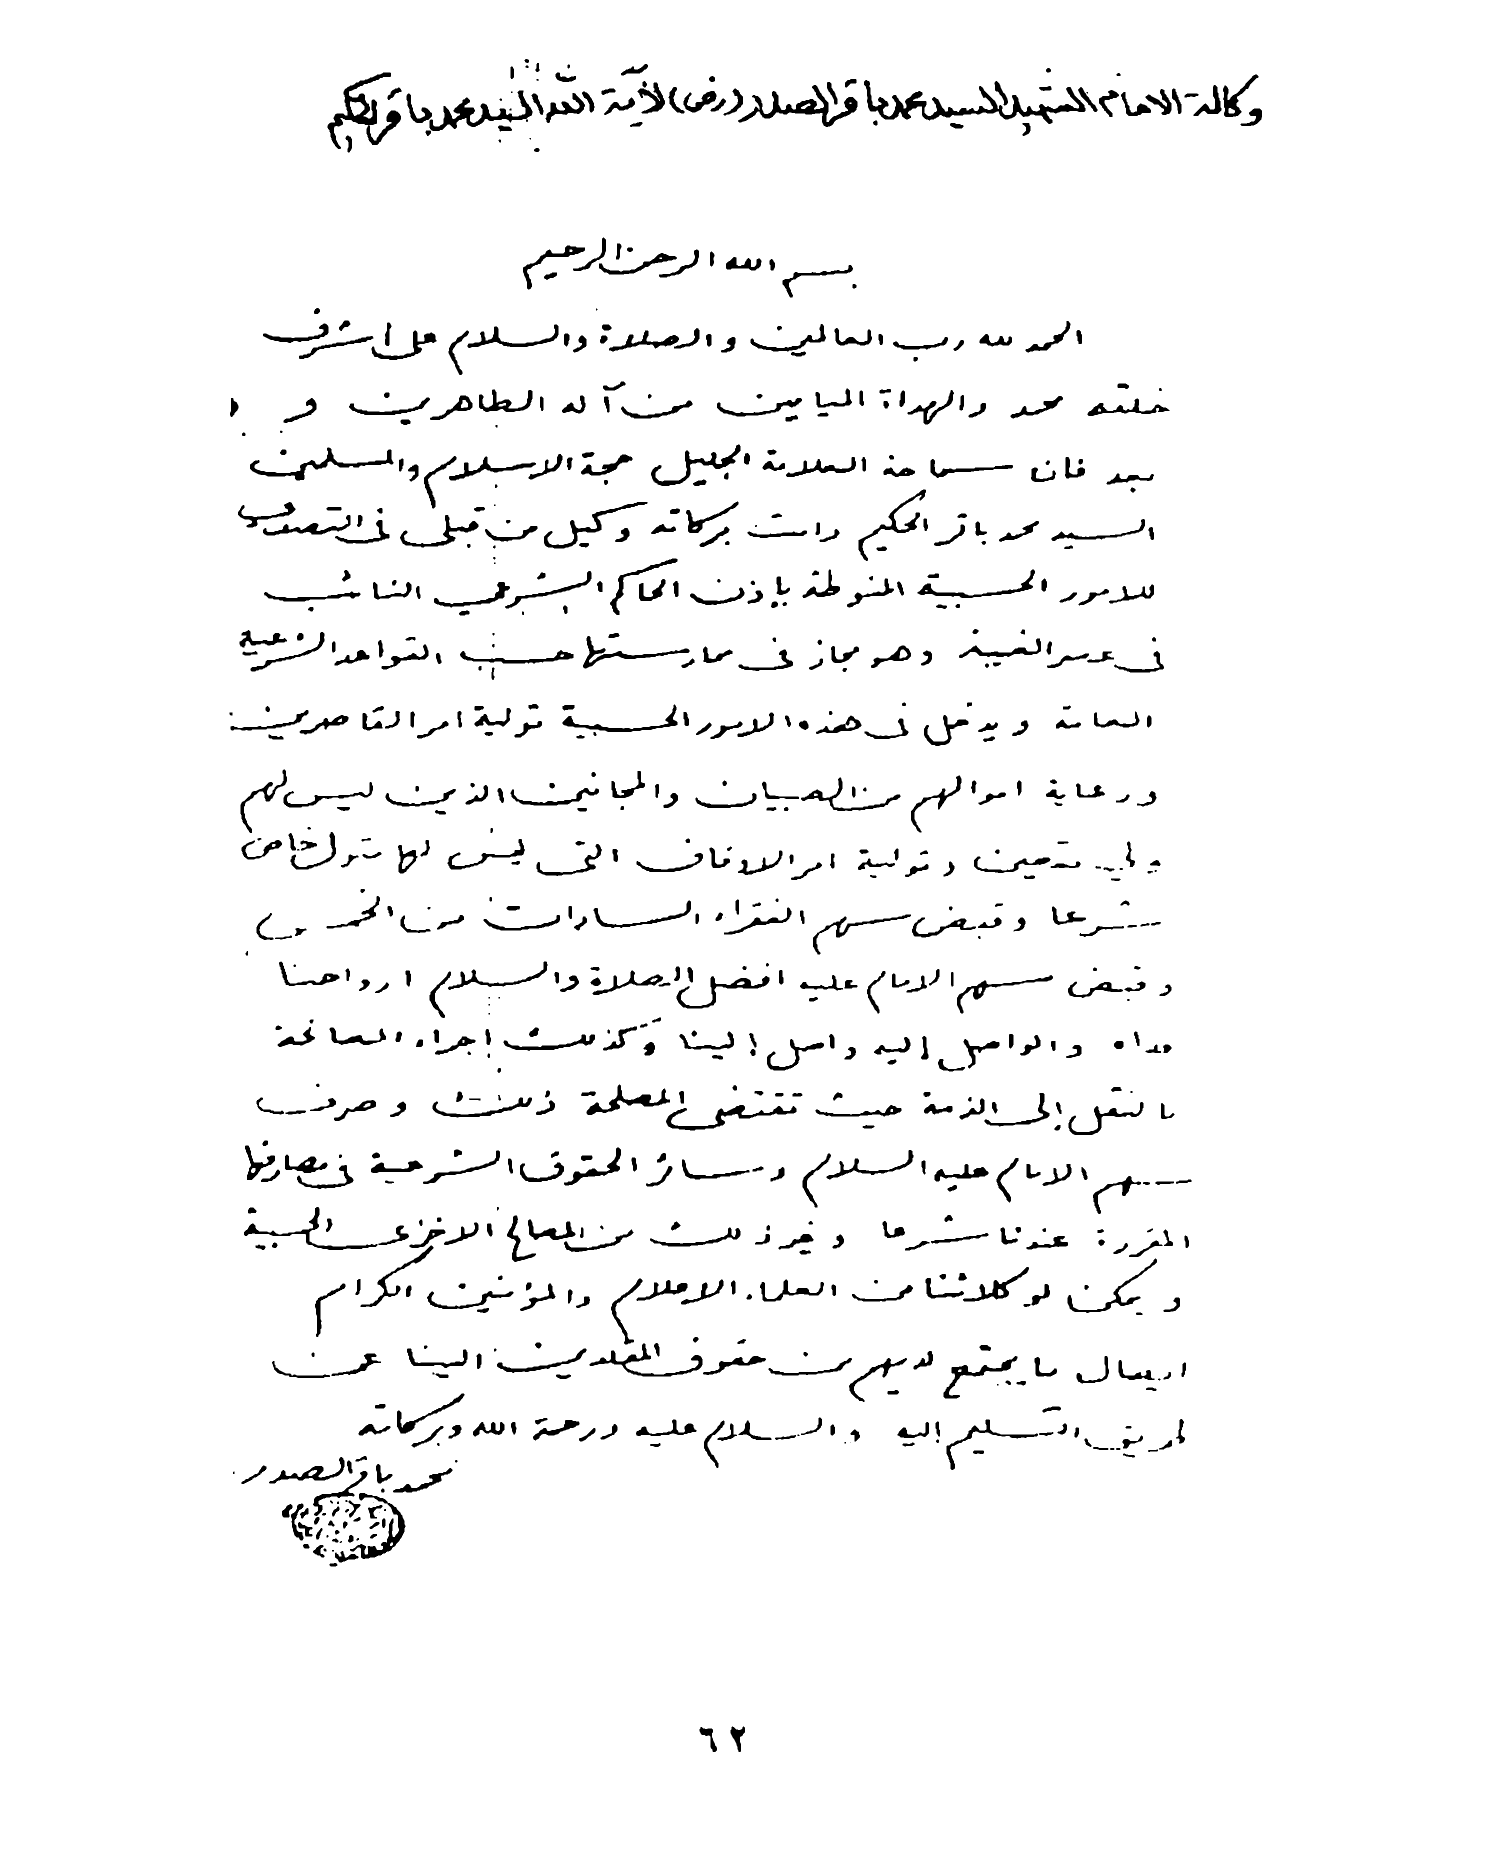 وكالة الامام الشهيد السيد محمد باقر الصدر (رض) لآية الله السيد محمد باقر الحكيم
بسم الله الرحمن الرحيم
الحمد لله رب العالمين والصلاة والسلام على اشرف
خلقه محمد والهداة الميامين من آله الطاهرين و
بعد فان سماحة العلامة الجليل حجة الاسلام والمسلمين
السيد محمد باقر الحكيم دامت بركاته وكيل من قبلي في التصدي
للامور الحسبية المنوطة بإذن الحاكم الشرعي النائب
في عصر الغيبة وهو مجاز في ممارستها حسب القواعد الشرعية
العامة ويدخل في هذه الامور الحسبية تولية امر القاصرين
ورعاية اموالهم من الصبيان والمجانين الذين ليس لهم
ولي متعين وتولية امر الاوقاف التي ليس لها متول خاص
شرعا وقبض سهم الفقراء السادات من الخمس
وقبض سهم الامام عليه افضل الصلاة والسلام ارواحنا
فداه والواصل إليه واصل إلينا وكذلك إجراء المصالحة
بالنقل إلى الذمة حيث تقتضي المصلحة ذلك وصرف
سهم الامام عليه السلام وسائر الحقوق الشرعية في مصارفها
المقررة عندنا شرعا وغير ذلك من المصالح الاخرى الحسبية
ويمكن لوكلائنا من العلماء الاعلام والمؤمنين الكرام
ايصال ما يجتمع لديهم من حقوق المقلدين الينا عن
طريق التسليم إليه والسلام عليه ورحمة الله وبركاته
محمد باقر الصدر
٦٢